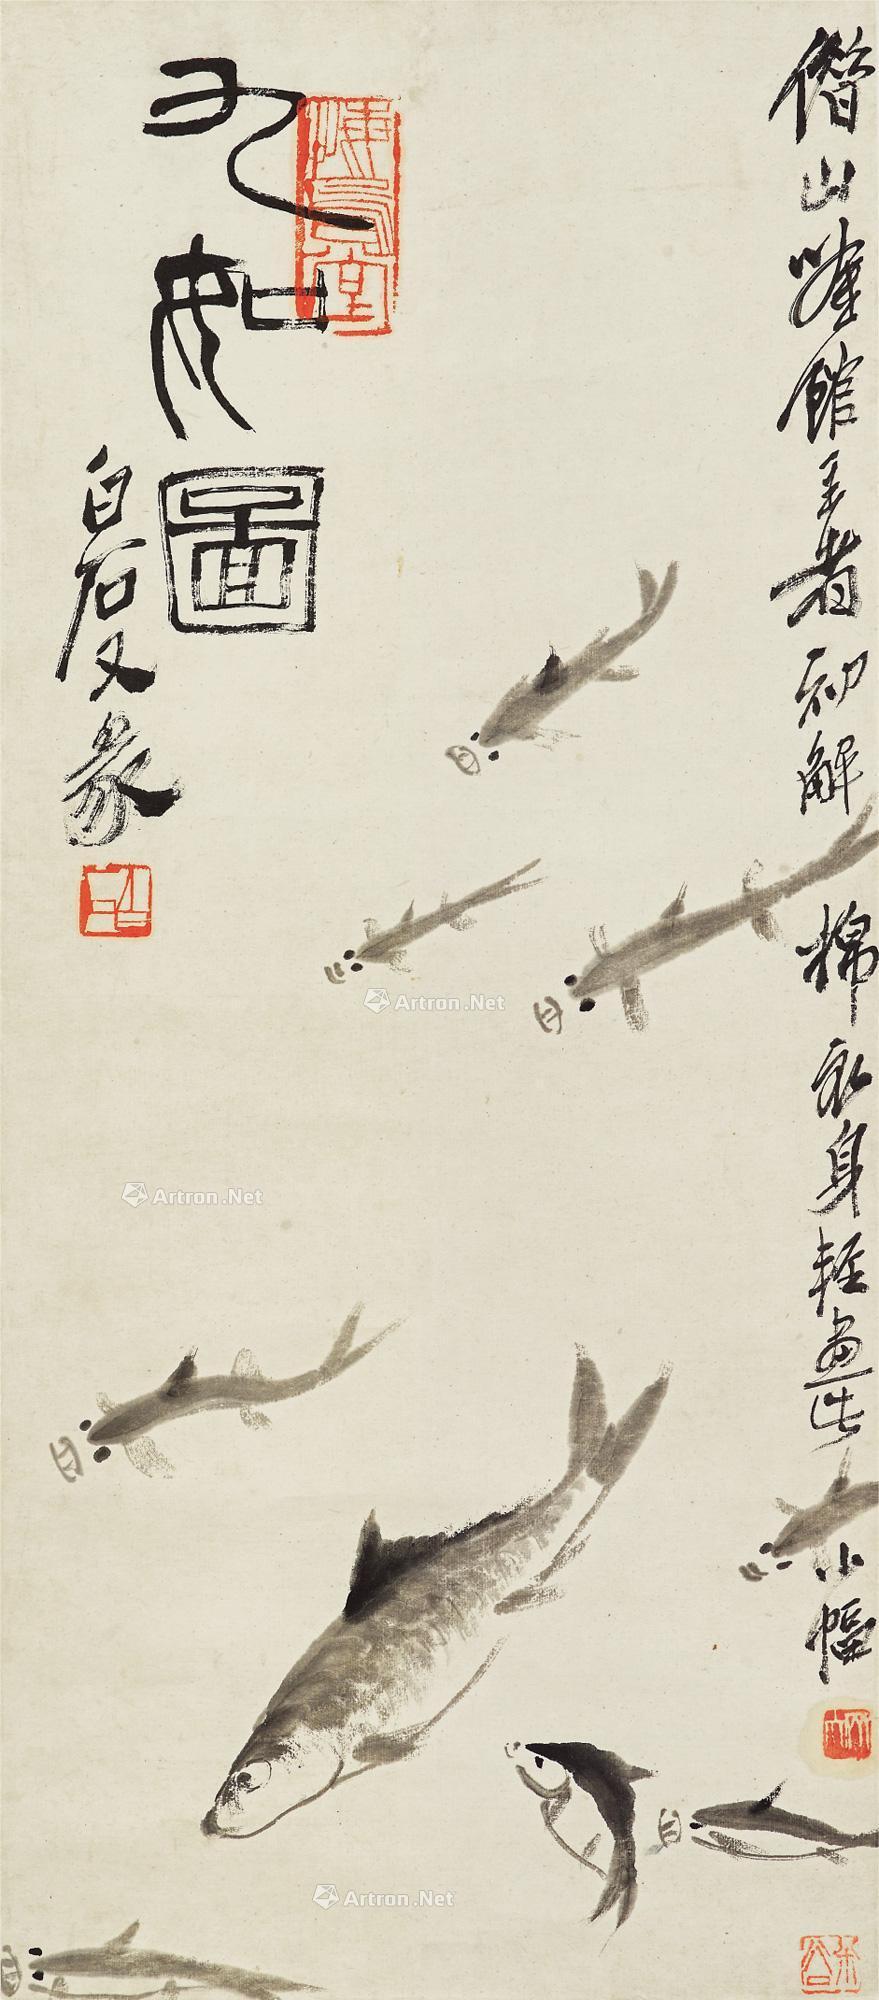 借山吟馆主者初解棉衣身轻画此小幅
九如图
白石又篆
Artron.Net
Artron.Net
Artron.Net